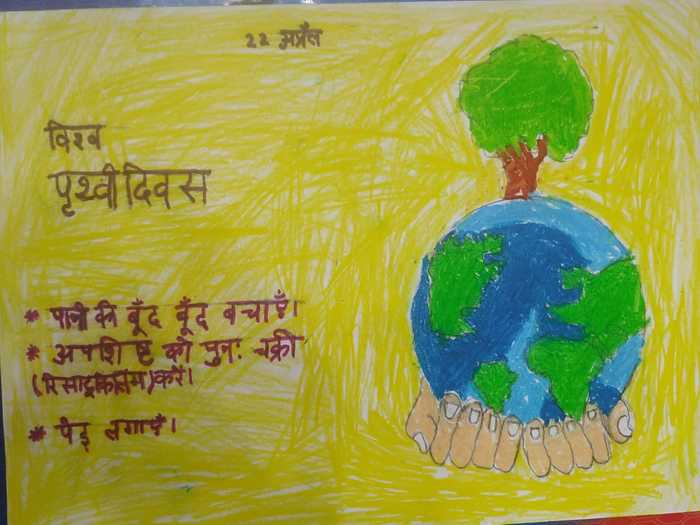 22 अप्रैल
विश्व
पृथ्वी दिवस
* पानी की बूँद बूँद बचाएँ।
* अपशिष्ट को पुनः चक्री
(रिसाइकिलिंग) करें।
* पेड़ लगाएँ।